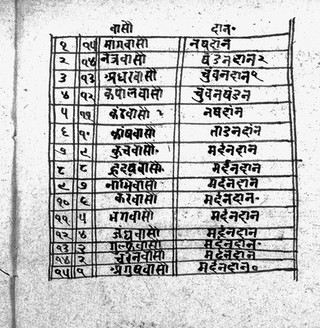 वासो दान
१ १५ मागवासो नषदान
२ १४ नेत्रवासो षंडनदान२
३ १३ अधरवासो चुंवनदान१
४ १२ कपालवासो चुंवनषंडन
५ ११ कंठवासो२ नषदान
६ १० काषवासो ताडनदान
७ ९ कुचवासो मर्दनदान
८ ८ हृदयवासो मर्दनदान
९ ७ नाभिवासो मर्दनदान
१० ६ करवासो मर्दनदान
११ ५ भगवासो मर्दनदान
१२ ४ जंघवासो मर्दनदान
१३ ३ गुल्फवासो मर्दनदान
१४ २ चरनवासो मर्दनदान
१५ १ मर्दनदान